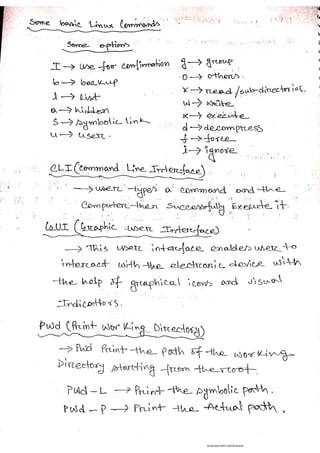 Some basic Linux Commands
Some options
I → use for confirmation
b → backup
l → list
a → hidden
S → symbolic link
u → user.
g → group
o → others.
r → read/sub-directories.
w → write
x → execute
d → decompress
f → force
i → ignore
CLI (Command Line Interface)
→ user types a command and the
Computer then Successfully Execute it.
GUI (Graphic user Interface)
→ This user interface enables user to
interact with the electronic device with
the help of graphical icons and visual
Indicators.
Pwd (Print Working Directory)
→ Pwd Print the path of the working
Directory starting from the root.
Pwd -L → Print the symbolic path.
Pwd -P → Print the Actual path.
Scanned with CamScanner